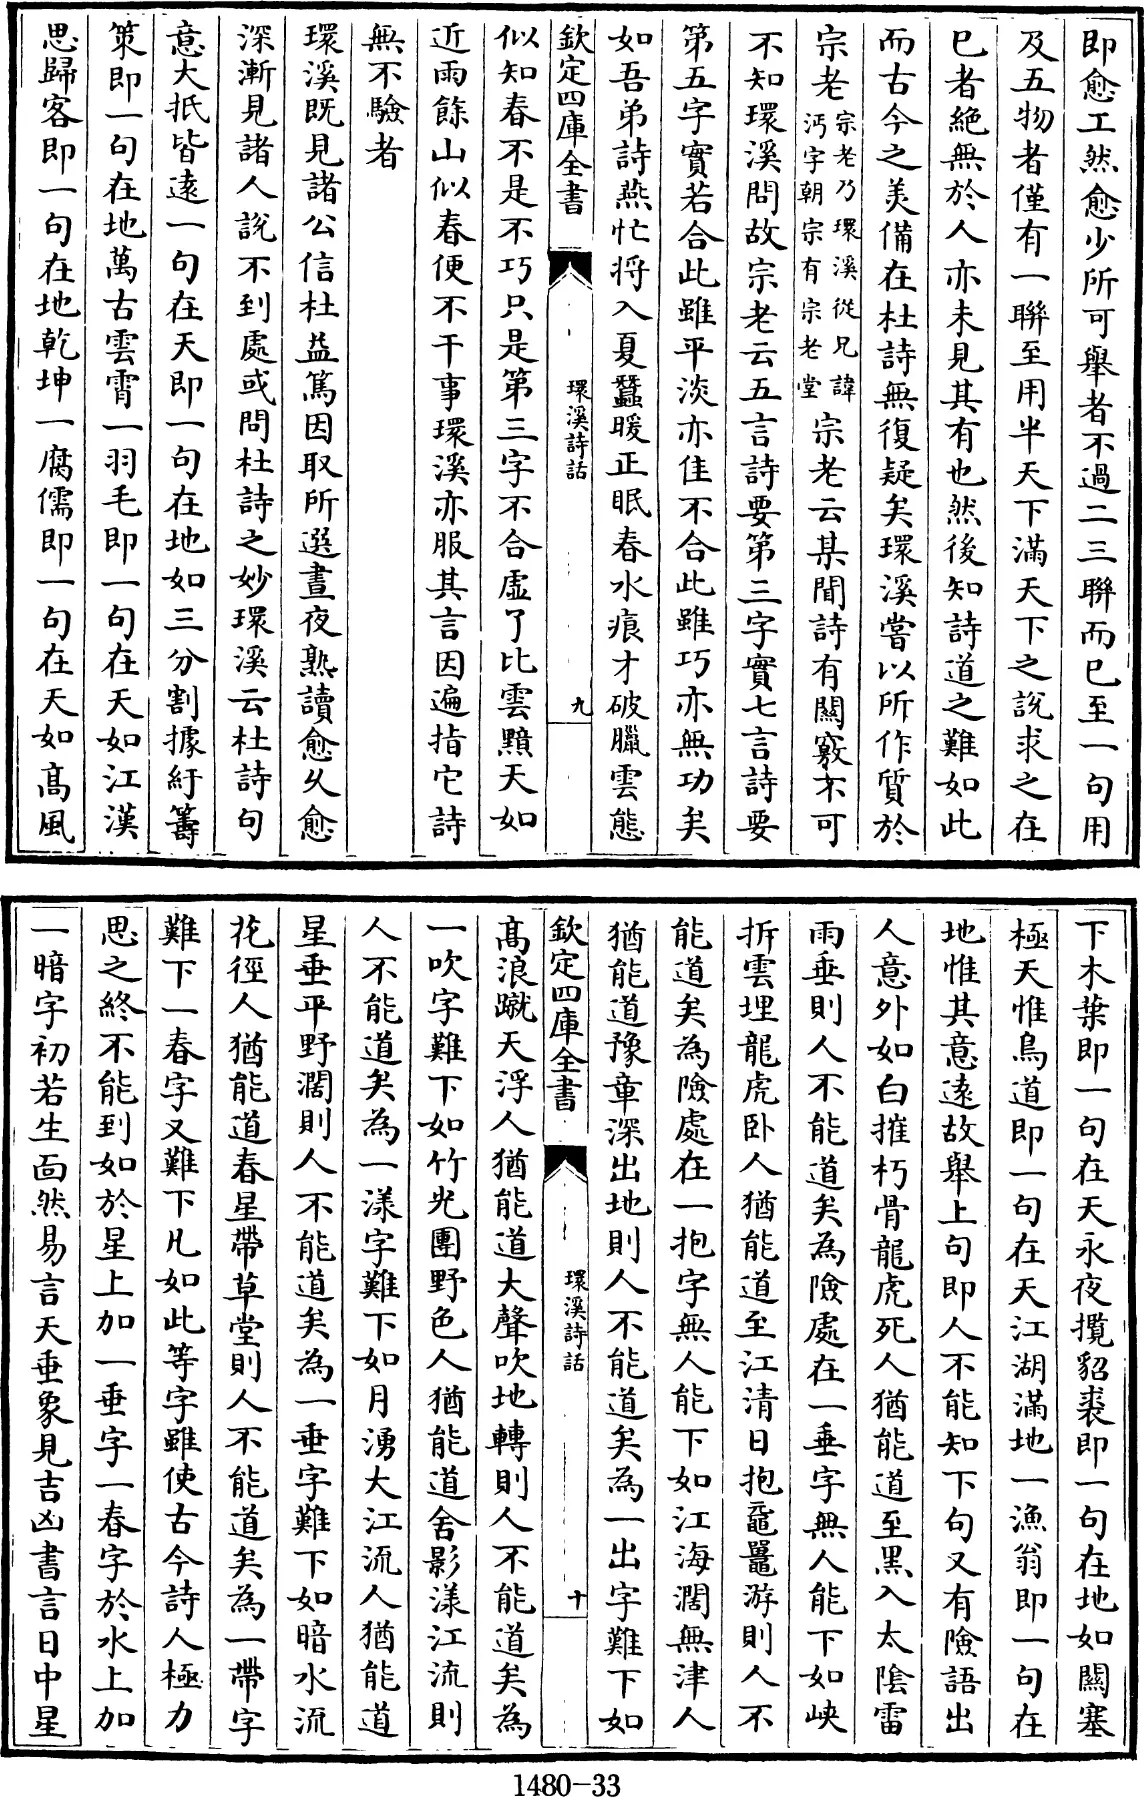 即愈工然愈少所可舉者不過二三聯而已至一句用
及五物者僅有一聯至用半天下滿天下之說求之在
已者絶無於人亦未見其有也然後知詩道之難如此
而古今之美備在杜詩無復疑矣環溪嘗以所作質於
宗老宗老乃環溪從兄諱沔字朝宗有宗老堂宗老云某聞詩有關竅不可
不知環溪問故宗老云五言詩要第三字實七言詩要
第五字實若合此雖平淡亦佳不合此雖巧亦無功矣
如吾弟詩燕忙将入夏蠶暖正眠春水痕才破臘雲態
欽定四庫全書
環溪詩話
九
似知春不是不巧只是第三字不合虚了比雲黯天如
近雨餘山似春便不干事環溪亦服其言因遍指它詩
無不驗者
環溪既見諸公信杜益篤因取所選晝夜熟讀愈久愈
深漸見諸人說不到處或問杜詩之妙環溪云杜詩句
意大抵皆逺一句在天即一句在地如三分割據紆籌
策即一句在地萬古雲霄一羽毛即一句在天如江漢
思歸客即一句在地乾坤一腐儒即一句在天如髙風
下木葉即一句在天永夜攬貂裘即一句在地如闗塞
極天惟鳥道即一句在天江湖滿地一漁翁即一句在
地惟其意遠故舉上句即人不能知下句又有險語出
人意外如白摧朽骨龍虎死人猶能道至黑入太陰雷
雨垂則人不能道矣為險處在一垂字無人能下如峽
折雲埋龍虎卧人猶能道至江清日抱黿鼉游則人不
能道矣為險處在一抱字無人能下如江海濶無津人
猶能道豫章深出地則人不能道矣為一出字難下如
欽定四庫全書
環溪詩話
十
髙浪蹴天浮人猶能道大聲吹地轉則人不能道矣為
一吹字難下如竹光團野色人猶能道舍影漾江流則
人不能道矣為一漾字難下如月湧大江流人猶能道
星垂平野濶則人不能道矣為一垂字難下如暗水流
花徑人猶能道春星帶草堂則人不能道矣為一帶字
難下一春字又難下凡如此等字雖使古今詩人極力
思之終不能到如於星上加一垂字一春字於水上加
一暗字初若生面然易言天垂象見吉凶書言日中星
1480-33